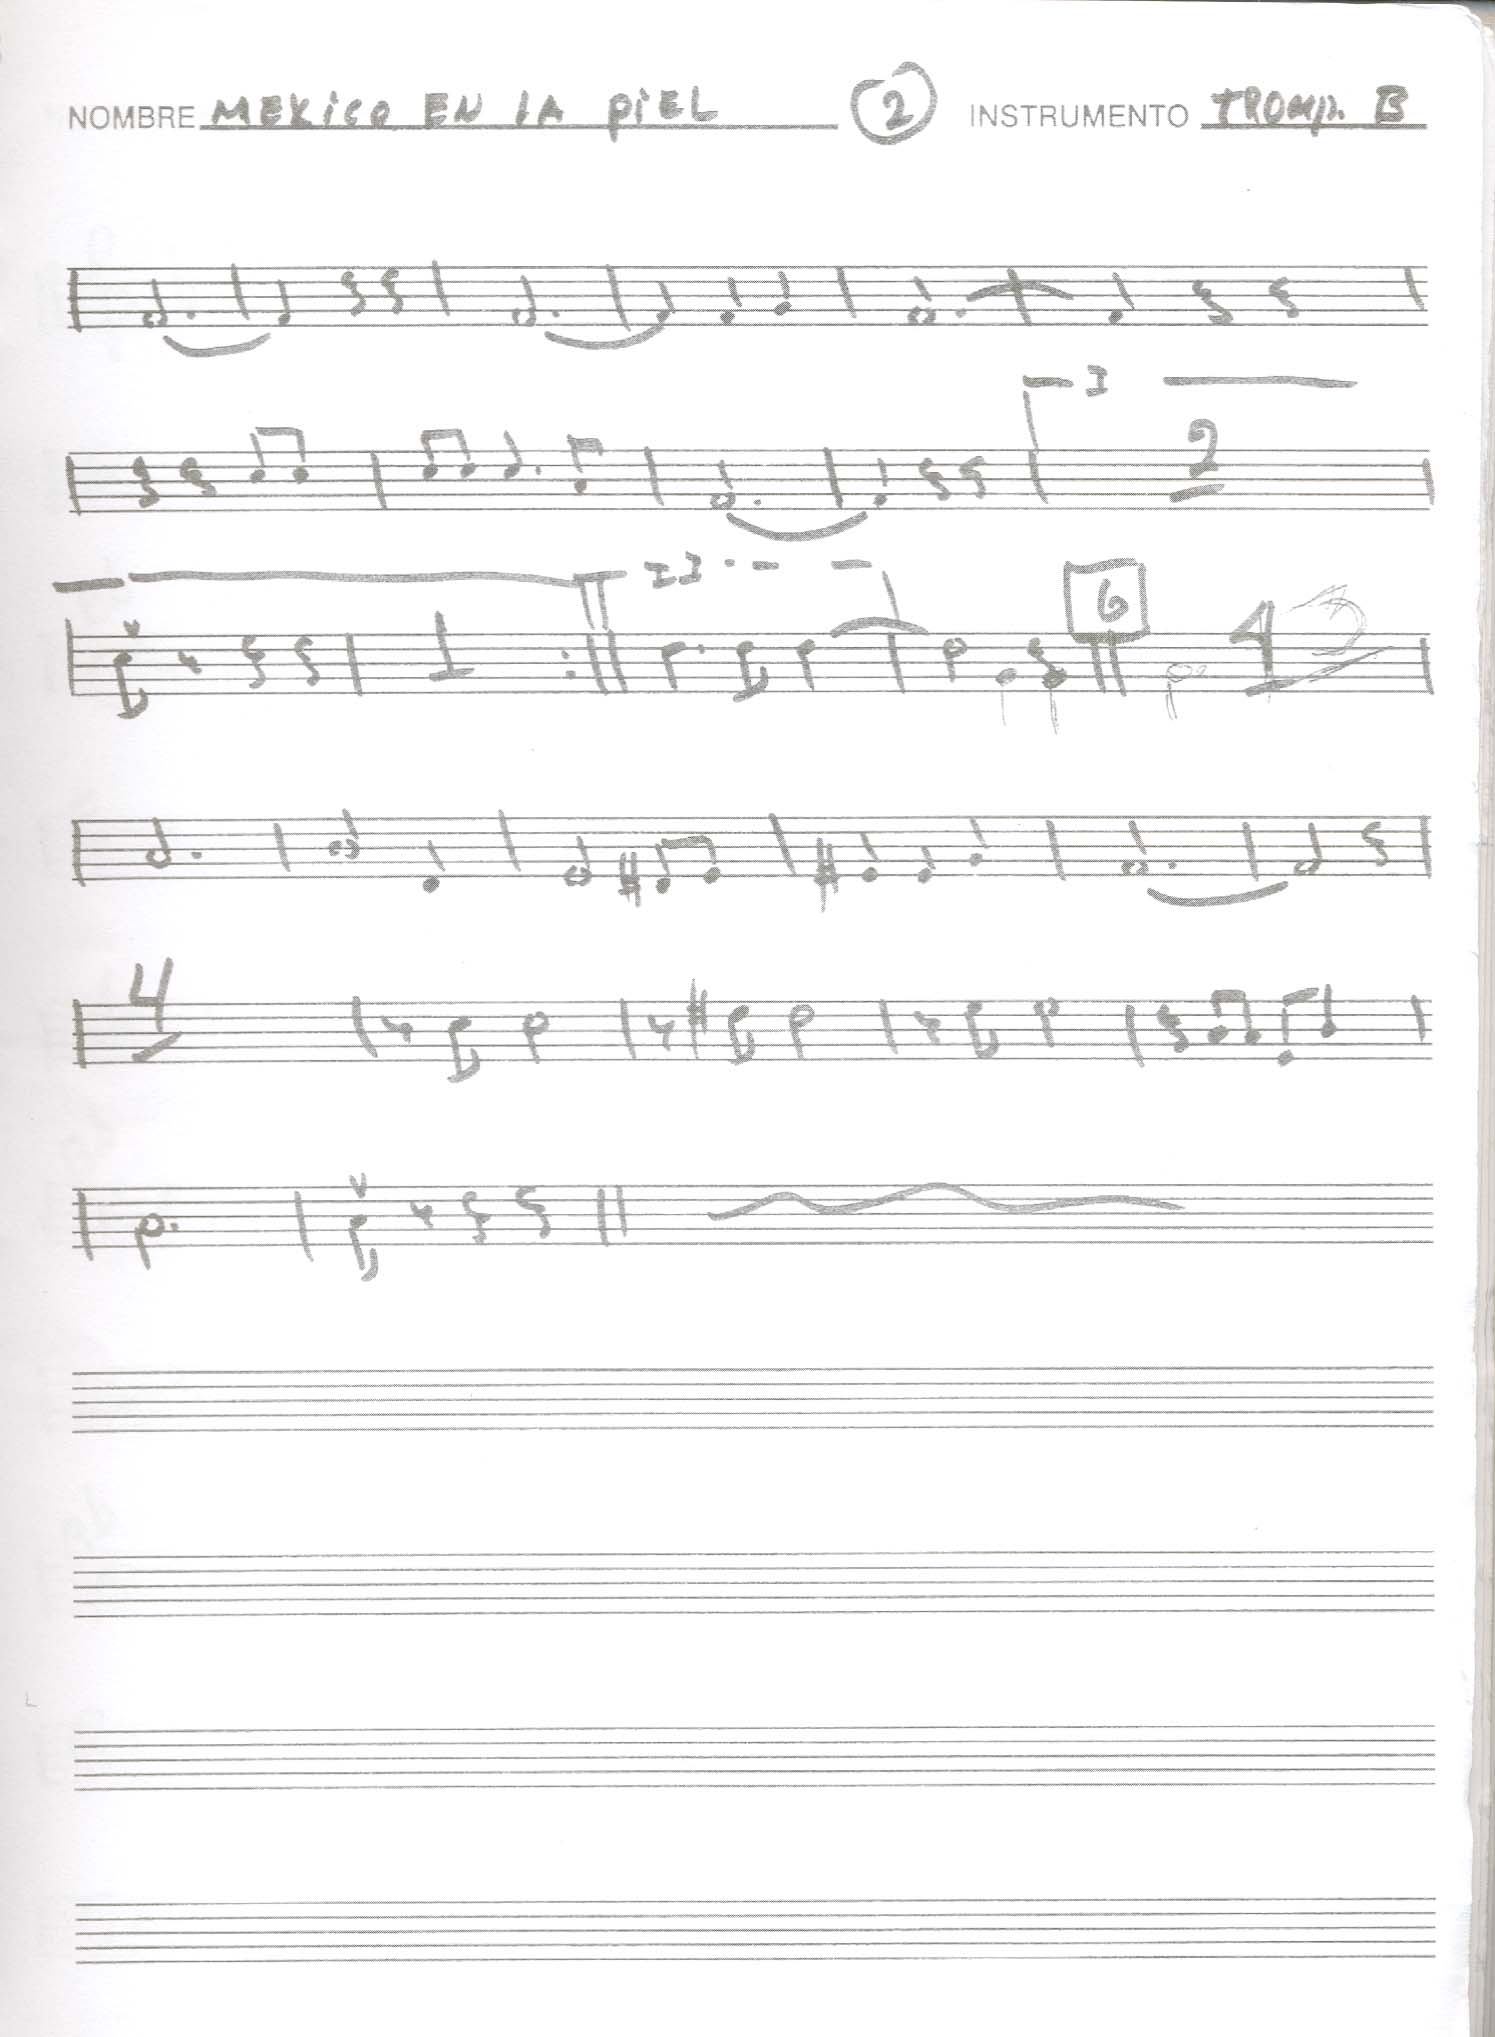 NOMBRE MEXICO EN LA PIEL 2 INSTRUMENTO TROMP. B
I
2
II
6
1
4